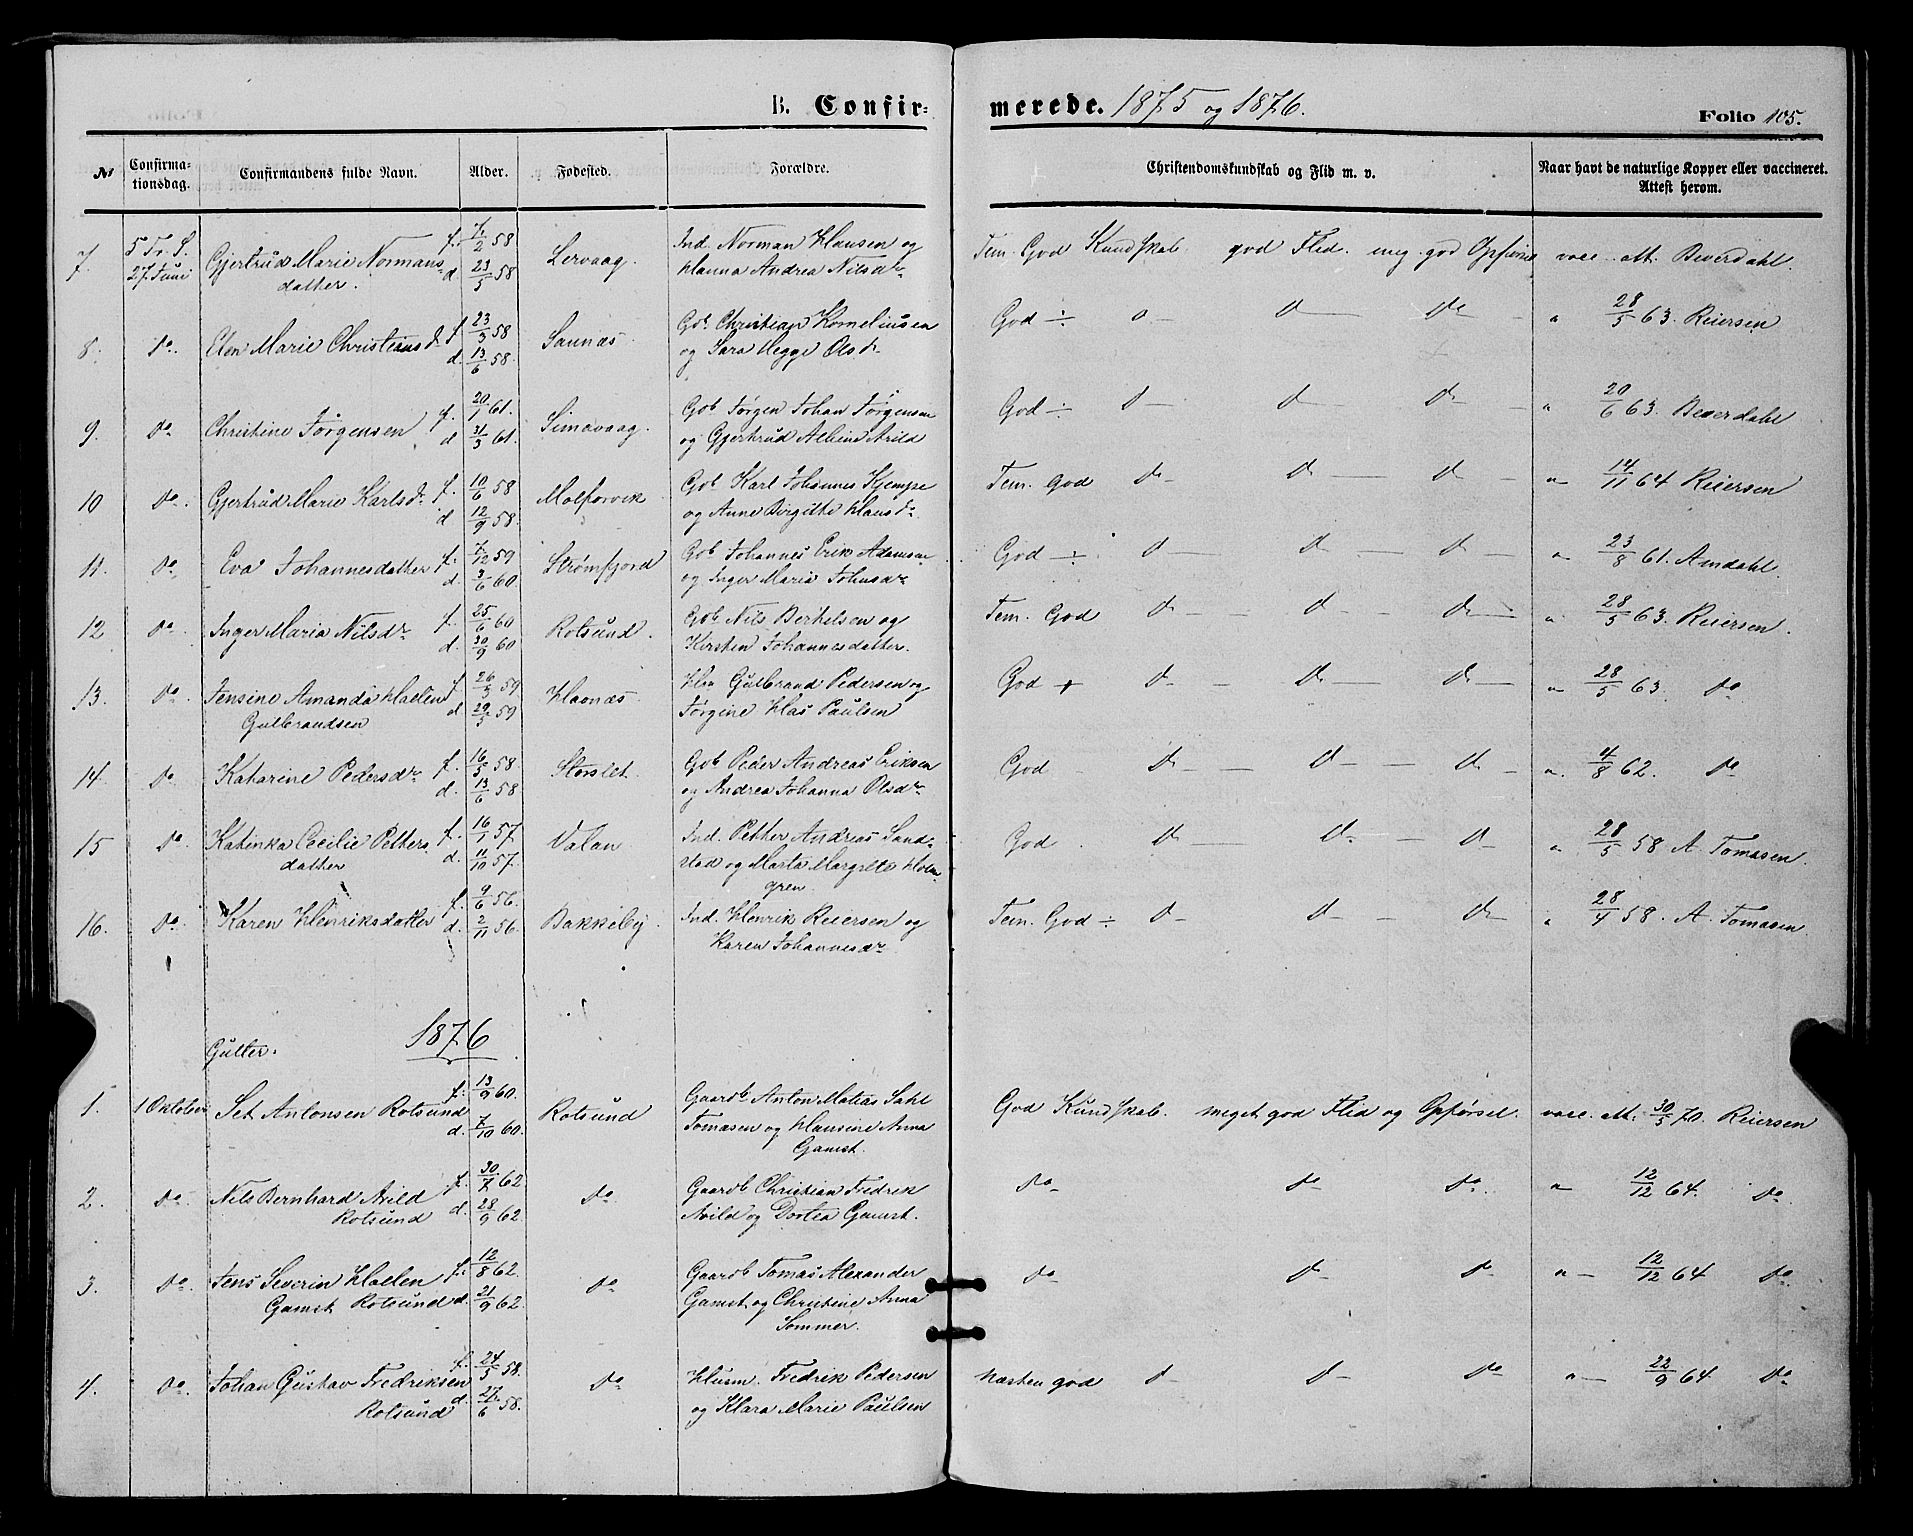 B. Confirmerede. 1875 og 1876.
Folio 105.
№ Confirmationsdag. Confirmandens fulde Navn. Alder. Fødested. Forældre. Christendomskundskab og Flid m. v. Naar havt de naturlige Kopper eller vaccineret. Attest herom.
7. 5 Tr. S. 27. Juni Gjertrud Marie Normansdatter. f. 7/2 58 d. 23/5 58 Lervaag. Ind. Norman Hansen og Hanna Andrea Nilsdr Tem. God Kundskab. god Flid. meg. god Opførsel vacc. att. Beverdahl.
8. do. Elen Marie Christiansdr f. 23/3 58 d. 13/6 58. Saunæs. Gb. Christian Korneliusen og Sara Hegge Olsdr God ÷ d — d — do — " 28/5 63. Reiersen
9. do Christine Jørgensen f. 20/1 61. d 31/3 61. Simavaag. Gb Jørgen Johan Jørgensen og Gjertrud Albine Arild God ÷ d — d — do — " 20/6 63. Beverdahl
10 do. Gjertrud Marie Karlsdr f. 10/6 58 d 12/9 58. Molforvik Gb Karl Johannes Kjempe og Anne Birgitte Hansdr Tem. god do — do — do — " 14/11 64 Reiersen
11. do. Eva Johannesdatter f. 7/12 59 d. 3/6 60 Strømfjord Gb Johannes Erik Adamsen og Inger Maria Johnsdr God ÷ d — d — d — " 23/8 61. Amdahl.
12 do Inger Maria Nilsdr f. 25/6 60 d. 30/9 60 Rotsund. Gb Nils Berthelsen og Kirsten Johannesdatter. Tem. God do — d — do — " 28/5 63. Reiersen.
13. do Jensine Amanda Haclen Gulbrandsen f 26/3 59. d 29/5 59 Havnæs. Gulbrand Pedersen og Jørgine Has Paulsen God + do — d — d — " 28/5 63. do.
14. do Katarine Pedersdr f. 16/5 58. d. 13/6 58 Storslet. Gb Peder Andreas Eriksen og Andrea Johanna Olsdr. God d — d — do — " 4/8 62. do
15 do Katinka Cecilie Pettersdatter f. 16/1 57 d. 11/10 57. Valan Ind. Petter Andreas Sandstad og Marta Margrete Holmgren. God. d — do — d — " 28/5 58 A. Tomasen.
16. do. Karen Henriksdatter f. 9/6 56. d. 2/11 56. Bakkeby Ind. Henrik Reiersen og Karen Johannesdr Tem. God ÷ d — d — do — " 28/4 58. A. Tomasen
Gutter. 1876
1. 1 Oktober Set Antonsen Rotsund f. 13/9 60. d. 7/10 60. Rotsund Gaardb Anton Matias Dahl Tomasen og Hansine Anna Gamst. God Kundskab. meget god Flid og Opførsel. vacc. att. 30/5 70. Reiersen
2. do. Nils Bernhard Arild Rotsund f. 30/7 62 d. 28/9 62. do. Gaardb Christian Fredrik Arild og Dortea Gamst. do do — do. " 12/12 64. do.
3. do. Jens Severin Haclen Gamst Rotsund f. 12/8 62. d. 21/9 62. do Gaardb Tomas Alexander Gamst og Christine Anna Sommer. do d — do " — 12/12 64 do.
4. do. Johan Gustav Fredriksen Rotsund f. 24/5 58. d. 27/6 58. do Husm. Fredrik Pedersen og Klara Marie Paulsen Næsten god d — d — do " — 22/9 64 do